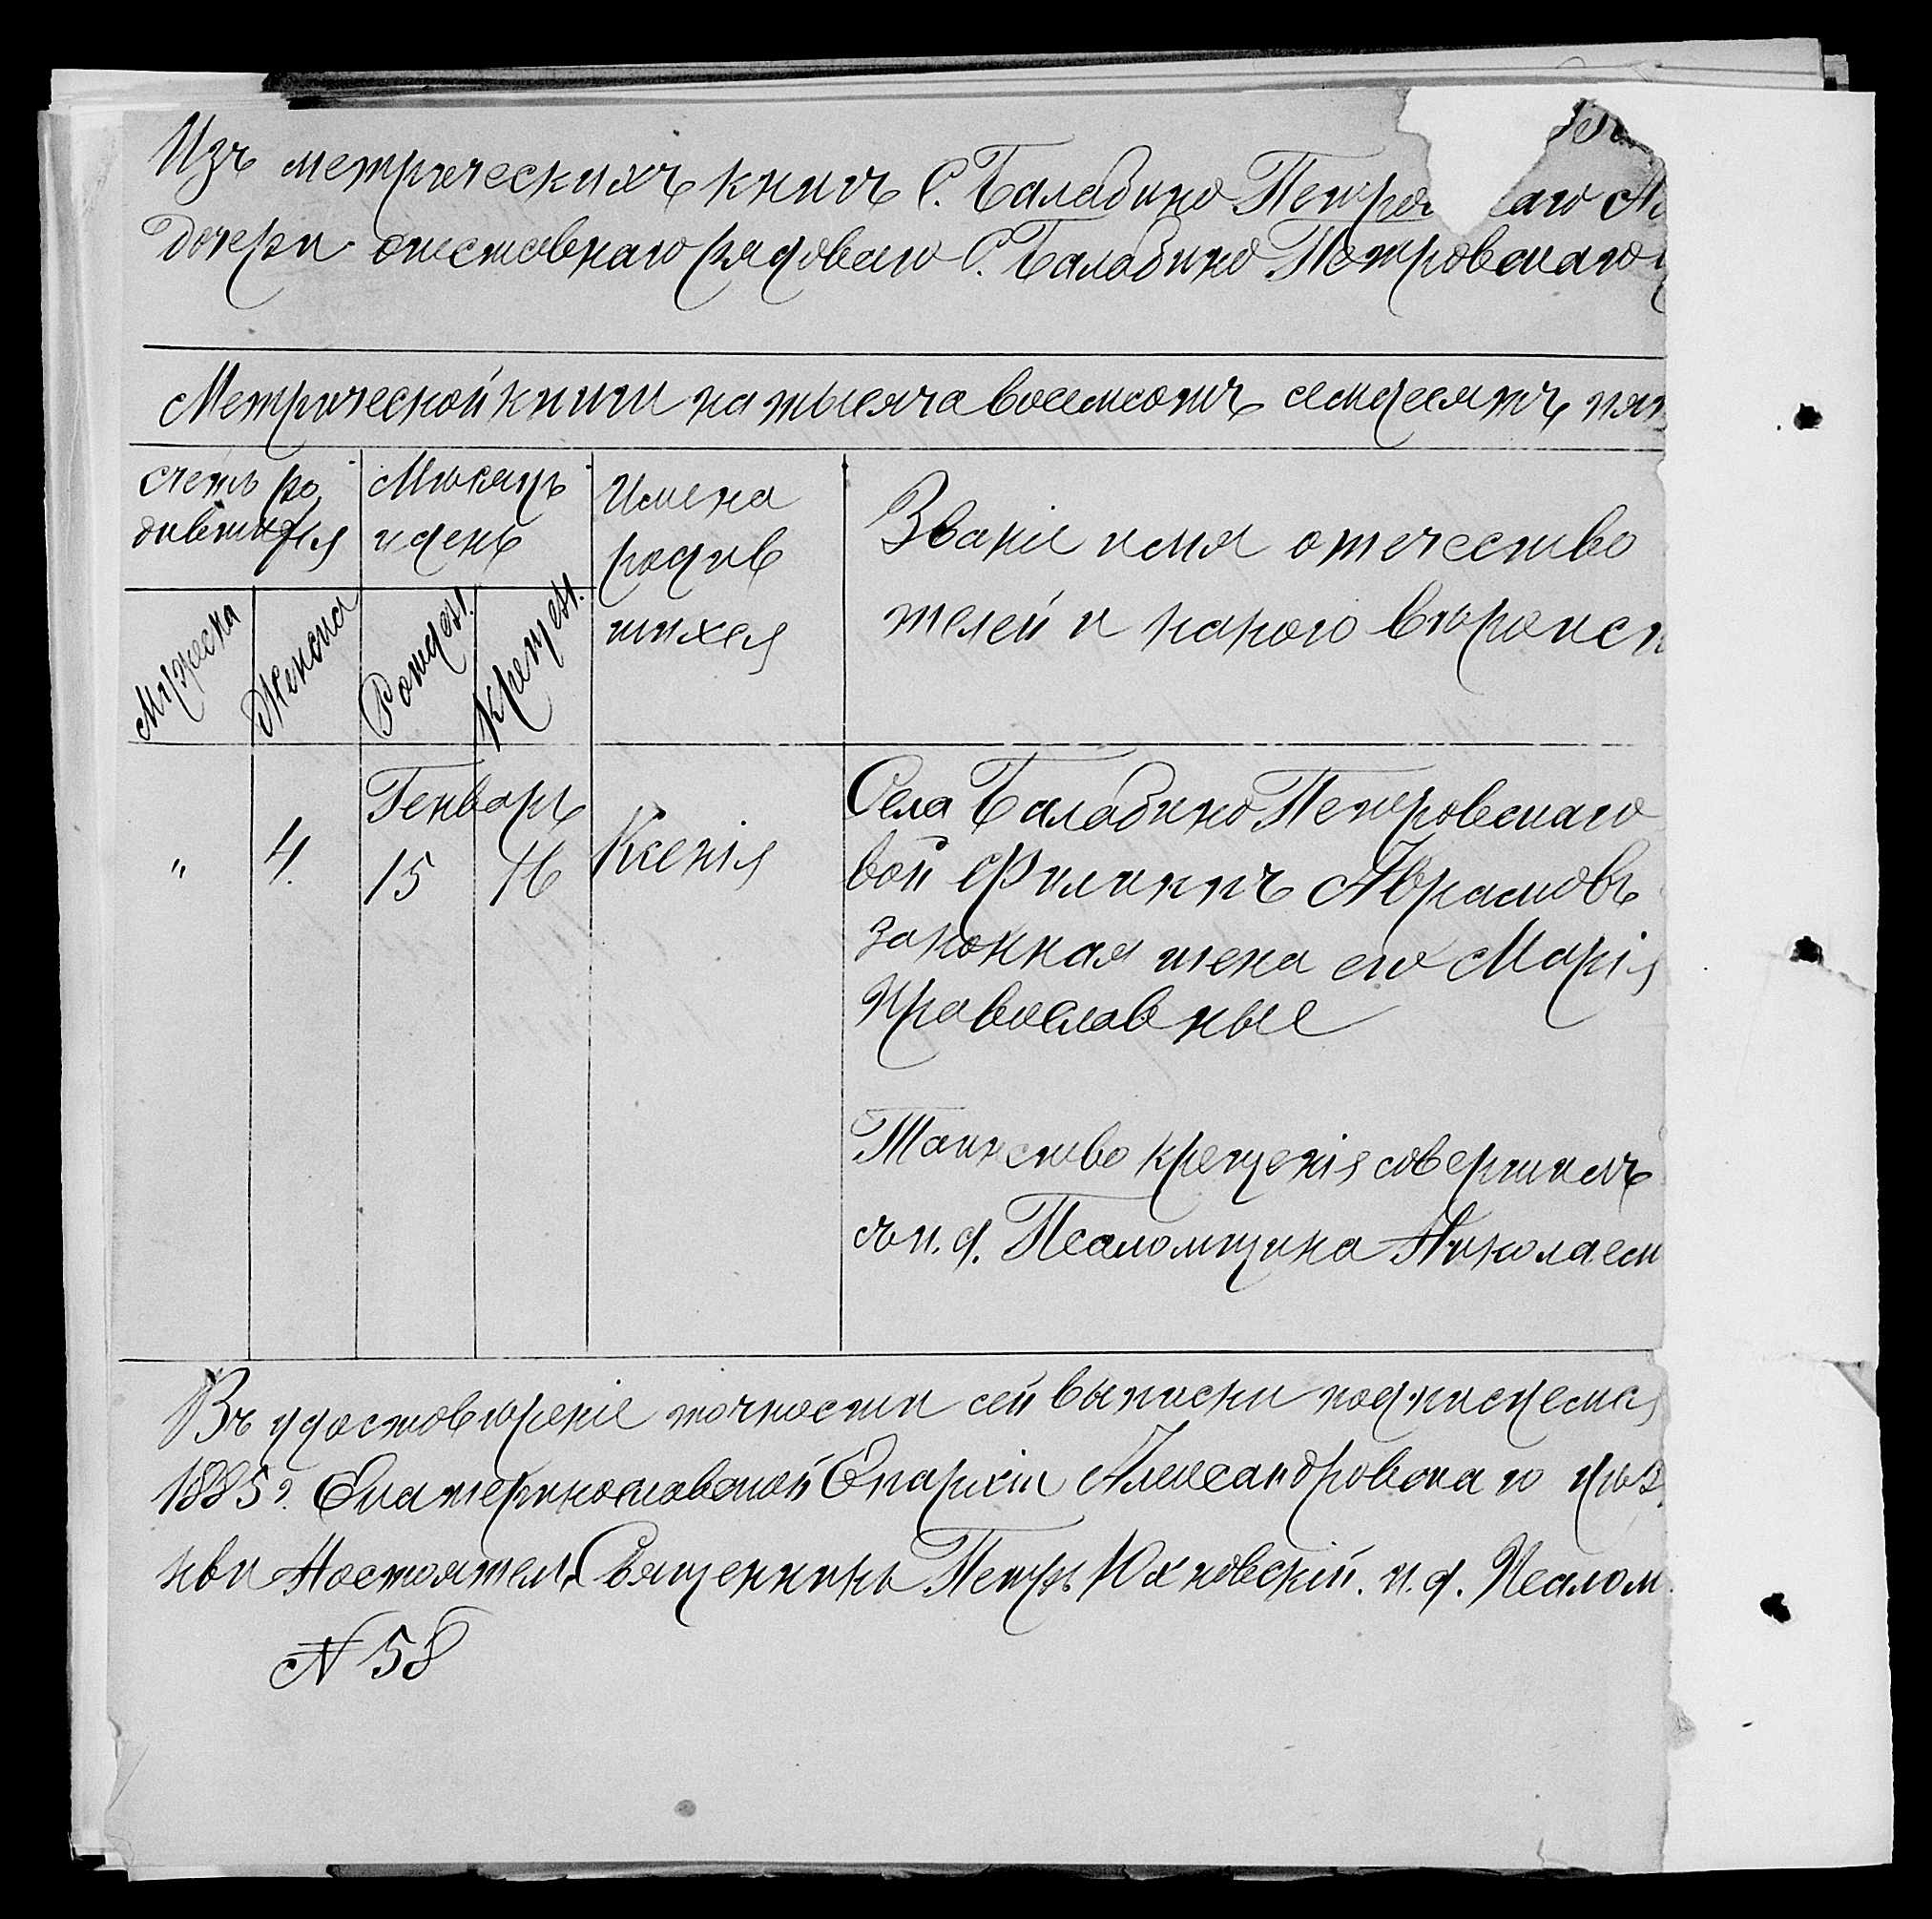 Изъ метрическихъ книгъ С. Балабино Петро аго
дочери отставнаго рядоваго С. Балабино Петровскаго
Метрической книги на тысяча восемсотъ семдесятъ пят
Счетъ ро
дившихся
Мѣсяцъ
и день
Имена
родив
шихся
Званіе имя отечество
телей и какого вѣроисп
Мужеска
Женска
Рожден.
Крещен.
Генварь
" 4. 15 16 Ксенія
Села Балабино Петровскаго
вой Филиппъ Аврамовъ
законная жена его Марія
православные
Таинство крещенія совершилъ
съ и. д. Псаломщика Николаем
Въ удостовѣреніе точности сей выписки подписуемся
1885 г. Екатеринославской Епархіи Александровскаго уѣз.
кви Настоятель Священникъ Петръ Юхновскій. и. д. Псалом.
N 58